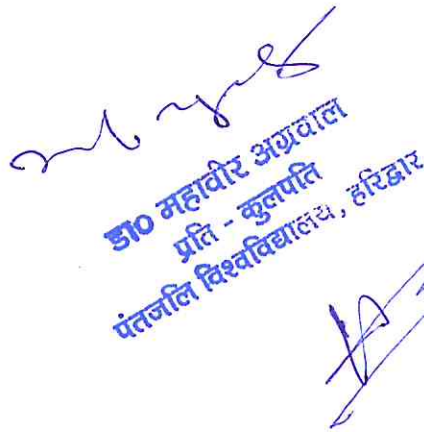 डा० महावीर अग्रवाल
प्रति - कुलपति
पंतजलि विश्वविद्यालय, हरिद्वार